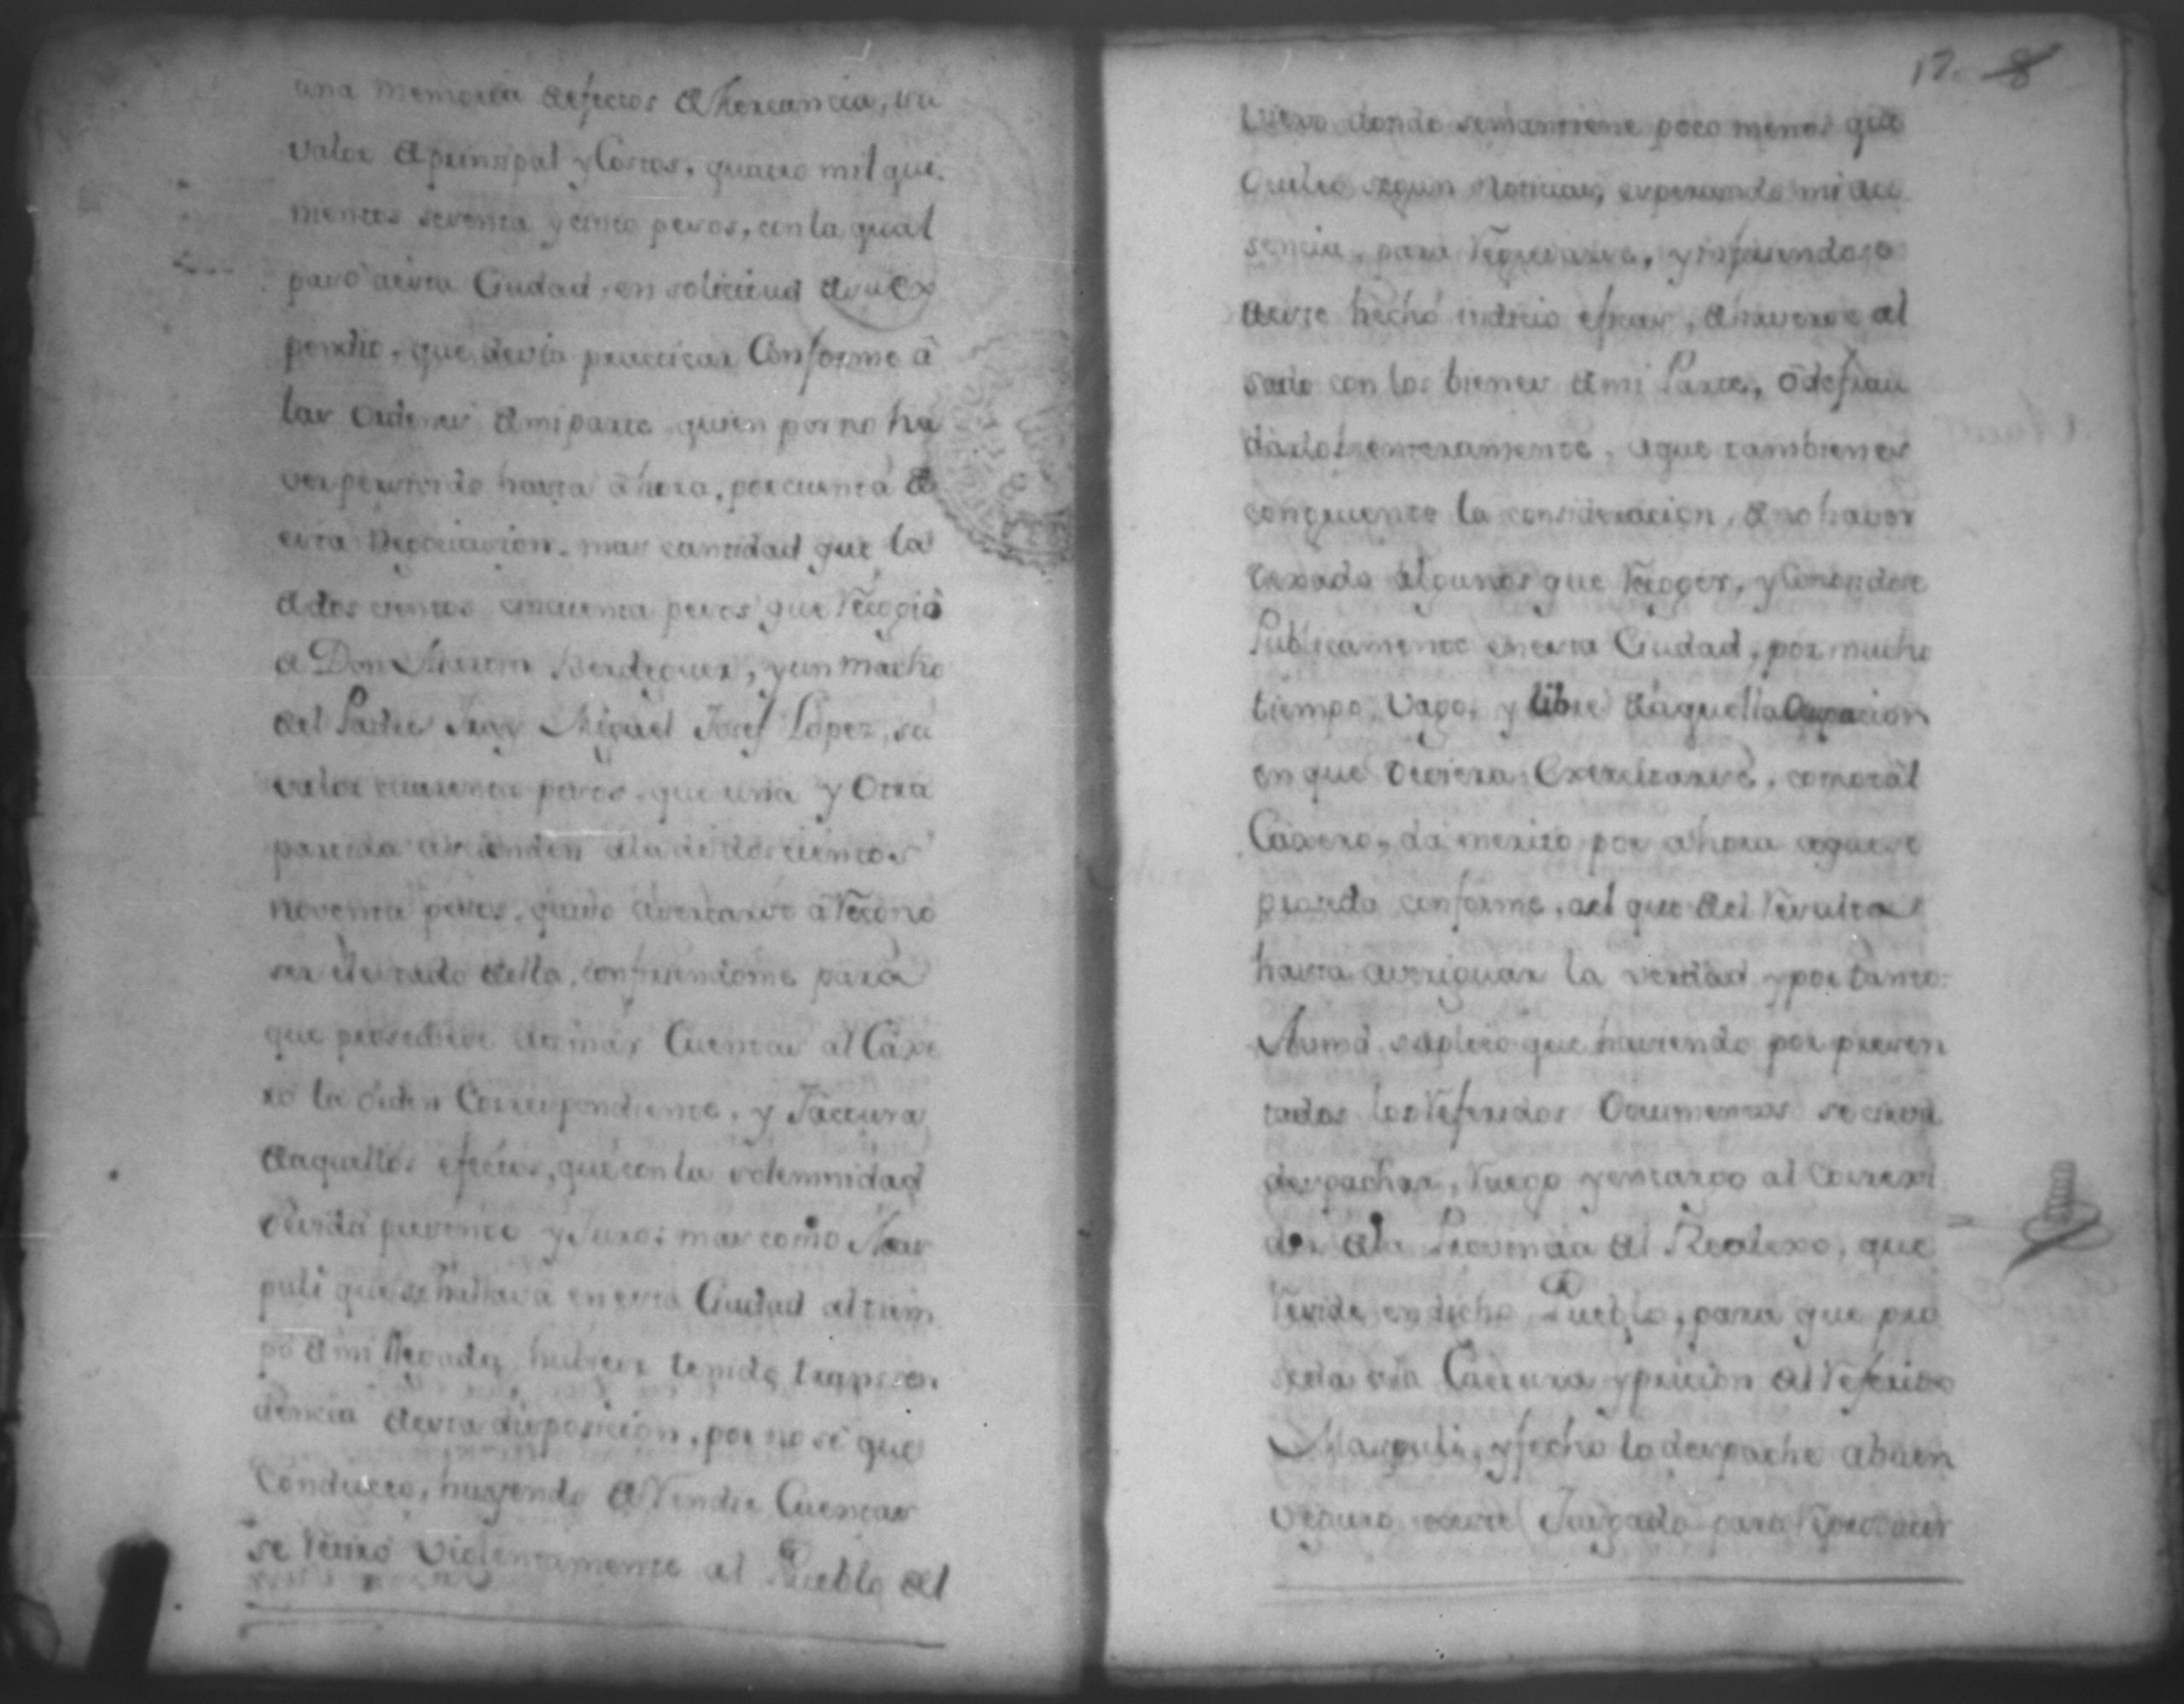 una memoria de efectos de Mercancia, su
valor de prinsipal y Costos, quatro mil qui
nientos setenta y cinco pesos, con la qual
pasó a esta Ciudad, en solicitud de su ex
pendio, que devia practicar Conforme â
las ordenes de mi parte quien por no ha
ver persivido hasta ahora, por cuenta de
esta Negociacion, mas cantidad que la
de dos cientos cincuenta pesos que recogió
de Don Berdeguer, y un macho
del Padre Fray Miguel Josef Lopez, su
valor cuarenta pesos, que una y Otra
partida ascienden a la de dos cientos
noventa pesos, quiso
ser de ella, confiriendome para
que prosediese a tomar Cuentas al Caxe
ro la orden Correspondiente, y Factura
de aquellos efectos, que con la solemnidad
devida presento y Juro: mas como Mas
puli que se hallava en esta Ciudad al tiem
po de mi llegada, hubiese tenido transcen
dencia de esta disposicion, por no sé que
Conducto, huyendo de rendir Cuentas
se retiró violentamente al Pueblo del
17. 8
Viexo donde se mantiene poco menos que
Oculto segun noticias, esperando mi au
sencia, para regresarse, y infiriendose
de este hecho indicio eficas, de haverse al
sado con los bienes de mi Parte, ô defrau
dadolos enteramente, a que tambien es
congruente la consideracion, de no haver
dexado algunos que recoger, y
Publicamente en esta Ciudad, por mucho
tiempo, Vago, y libre de aquella Ocupacion
en que deviera Exercitarse, como tal
Caxero, da merito por ahora a que se
proseda conforme, a el que de el resulta
hasta averiguar la verdad y por tanto:
A Vmd suplico que haviendo por presen
tados los referidos Documentos se sirva
despachar, ruego y encargo al Correxi
dor de la Provincia del Realexo, que
reside en dicho Pueblo, para que pro
seda a la Captura y pricion del referido
Maspuli, y fecho lo despache a buen
seguro a este Juzgado para